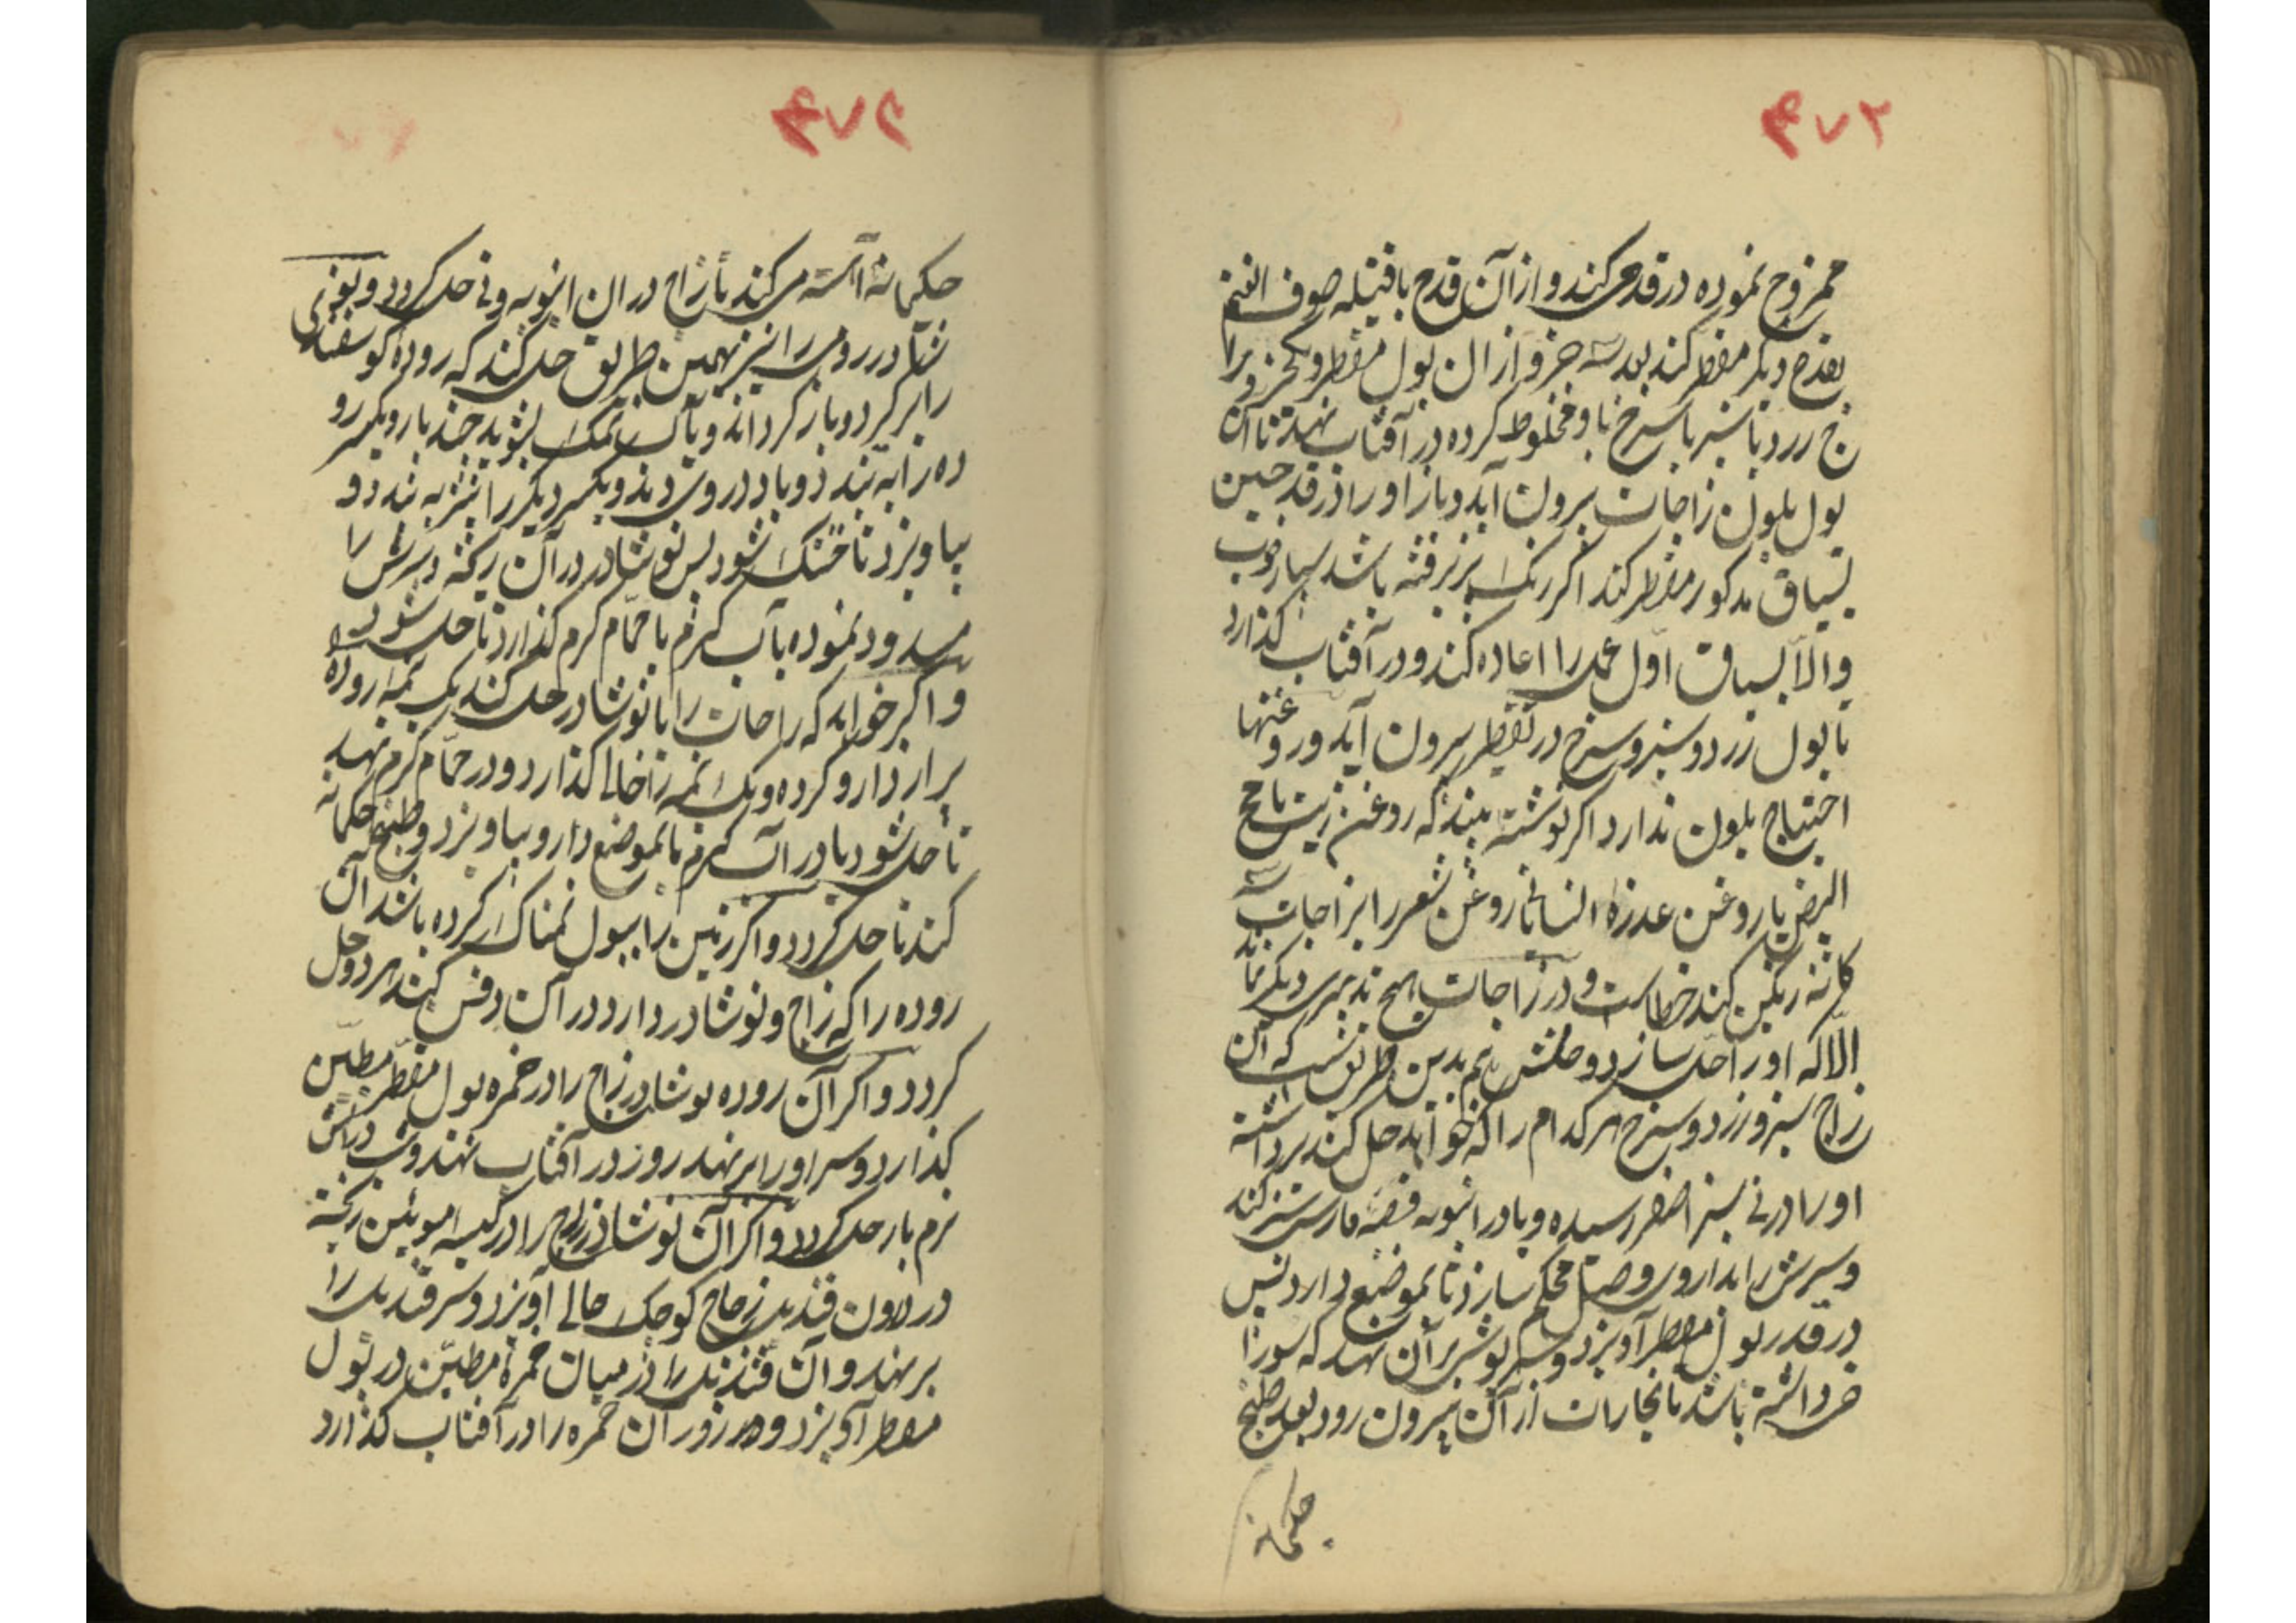 ۴۷۲
ممزوج نموده در قدحی کند و از آن قدح با فتیله صوف الغنم
بقدح دیگر مقطر کند بعد سه جزو از ان بول مقطر و یکجزو را
ج زرد یا سبز یا سرخ با و مخلوط کرده در آفتاب نهد تا آن
بول بلون زاجات برون آید و باز او را در قدحین
بسیاق مذکور مقطر کند اگر رنگ پزیرفته باشد بسیار خوب
والّا بسیاق اوّل عمل را اعاده کند و در آفتاب گذارد
تا بول زرد و سبز و سرخ در تقطیر برون آید و روغنها
احتیاج بلون ندارد اگر نوشته بیند که روغن زیت یا مح
البیض یا روغن عذرة النسا یا روغن شعر را بزاجات سه
کانه رنگین کند خطاست و در زاجات هیچ تدبیری دیگر نماند
الّا که او را حل سازد و حلش هم بدین طریق است که آن
زاج سبز و زرد و سرخ هر کدام را که خواهد حل کند برداشته
او را در نی سبز اخضر رسیده و یا در انبوبه فضه فارسی سبز کند
و سرش را بداروی وصل محکم سازد تا بموضع دارد پس
در قدر بول مقطر آویزد و سرپوشی بر آن نهد که سوراخ
خ داشته باشد تا بخارات از آن بیرون رود بعد طبخ
حکیمانه
۴۷۳
حکیمانه آهسته می کند تا زاج در ان انبوبه و نی حل گردد و
نشادر رومی را نیز بهمین طریق حل کند که روده گوسفندی
را بر گردد و باز گرداند و پاک با نمک بشوید چند بار و یکسر رو
ده را به بندد و باد در وی دمد و یکسر دیگر را نیز به بندد و
بیاویزد تا خشک شود پس نوشادر در آن ریخته و سرش را
مسدود نموده بآب گرم یا حمّام گرم گذارد تا حل شود
و اگر خواهد که زاجات را با نوشادر حل کند یک نیمه روده
بر از دارو کرده و یک نیمه را خالی گذارد و در حمّام گرم نهد
تا حل شود یا در آب گرم تا بموضع دارو بیاویزد و طبخ حکیمانه
کند تا حل گردد و اگر زمین را ببول نمناک کرده باشد آن
روده را که زاج و نوشادر دارد در آن دفن کند هر دو حل
گردد و اگر آن روده نوشادر زاج را در خمره بول مقطّر مطیّن
گذارد و سر او را بر نهد روز در آفتاب نهد و شب در آتش
نرم بار حل گردد و اگر آن نوشادر زاج را در کیسه مویین ریخته
در درون قندیل زجاج کوچک خالی آویزد و سر قندیل را
بر نهد و آن قندیل را در میان خمره مطیّن در بول
مقطر آویزد و هر روز آن خمره را در آفتاب گذارد